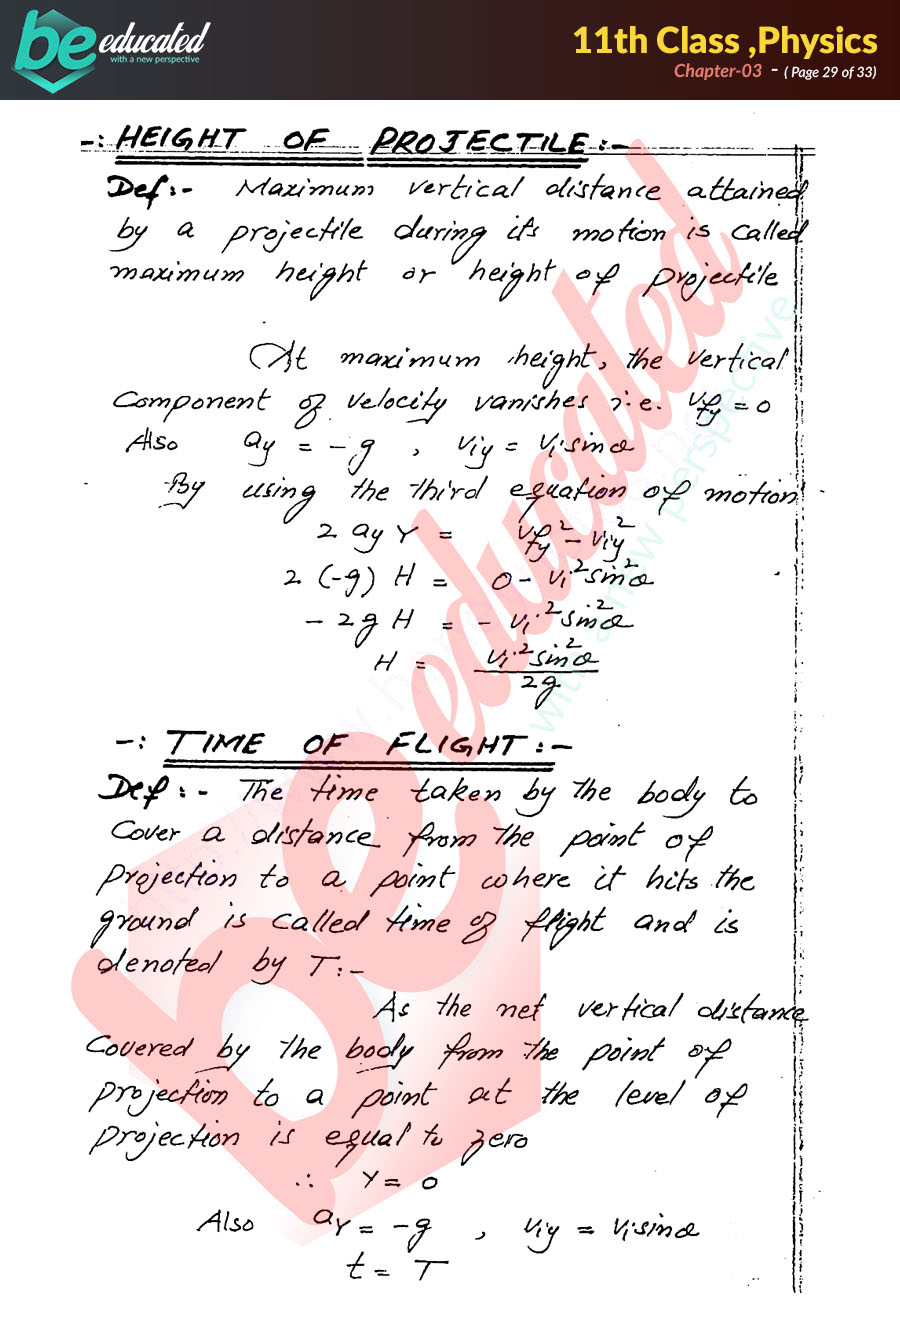 be educated
with a new perspective
11th Class ,Physics
Chapter-03 - ( Page 29 of 33)
-: HEIGHT OF PROJECTILE :-
Def:- Maximum vertical distance attained
by a projectile during its motion is called
maximum height or height of projectile
At maximum height, the vertical
Component of velocity vanishes i.e. Vfy = 0
Also ay = -g , Viy = Vi sinθ
By using the third equation of motion
2 ay Y = Vfy² - Viy²
2 (-g) H = 0 - Vi² sin²θ
- 2g H = - Vi² sin²θ
H = Vi² sin²θ / 2g
-: TIME OF FLIGHT :-
Def :- The time taken by the body to
Cover a distance from the point of
Projection to a point where it hits the
ground is called time of flight and is
denoted by T:-
As the net vertical distance
Covered by the body from the point of
projection to a point at the level of
projection is equal to zero
∴ Y = 0
Also aY = -g , Viy = Vi sinθ
t = T
be educated
with a new perspective